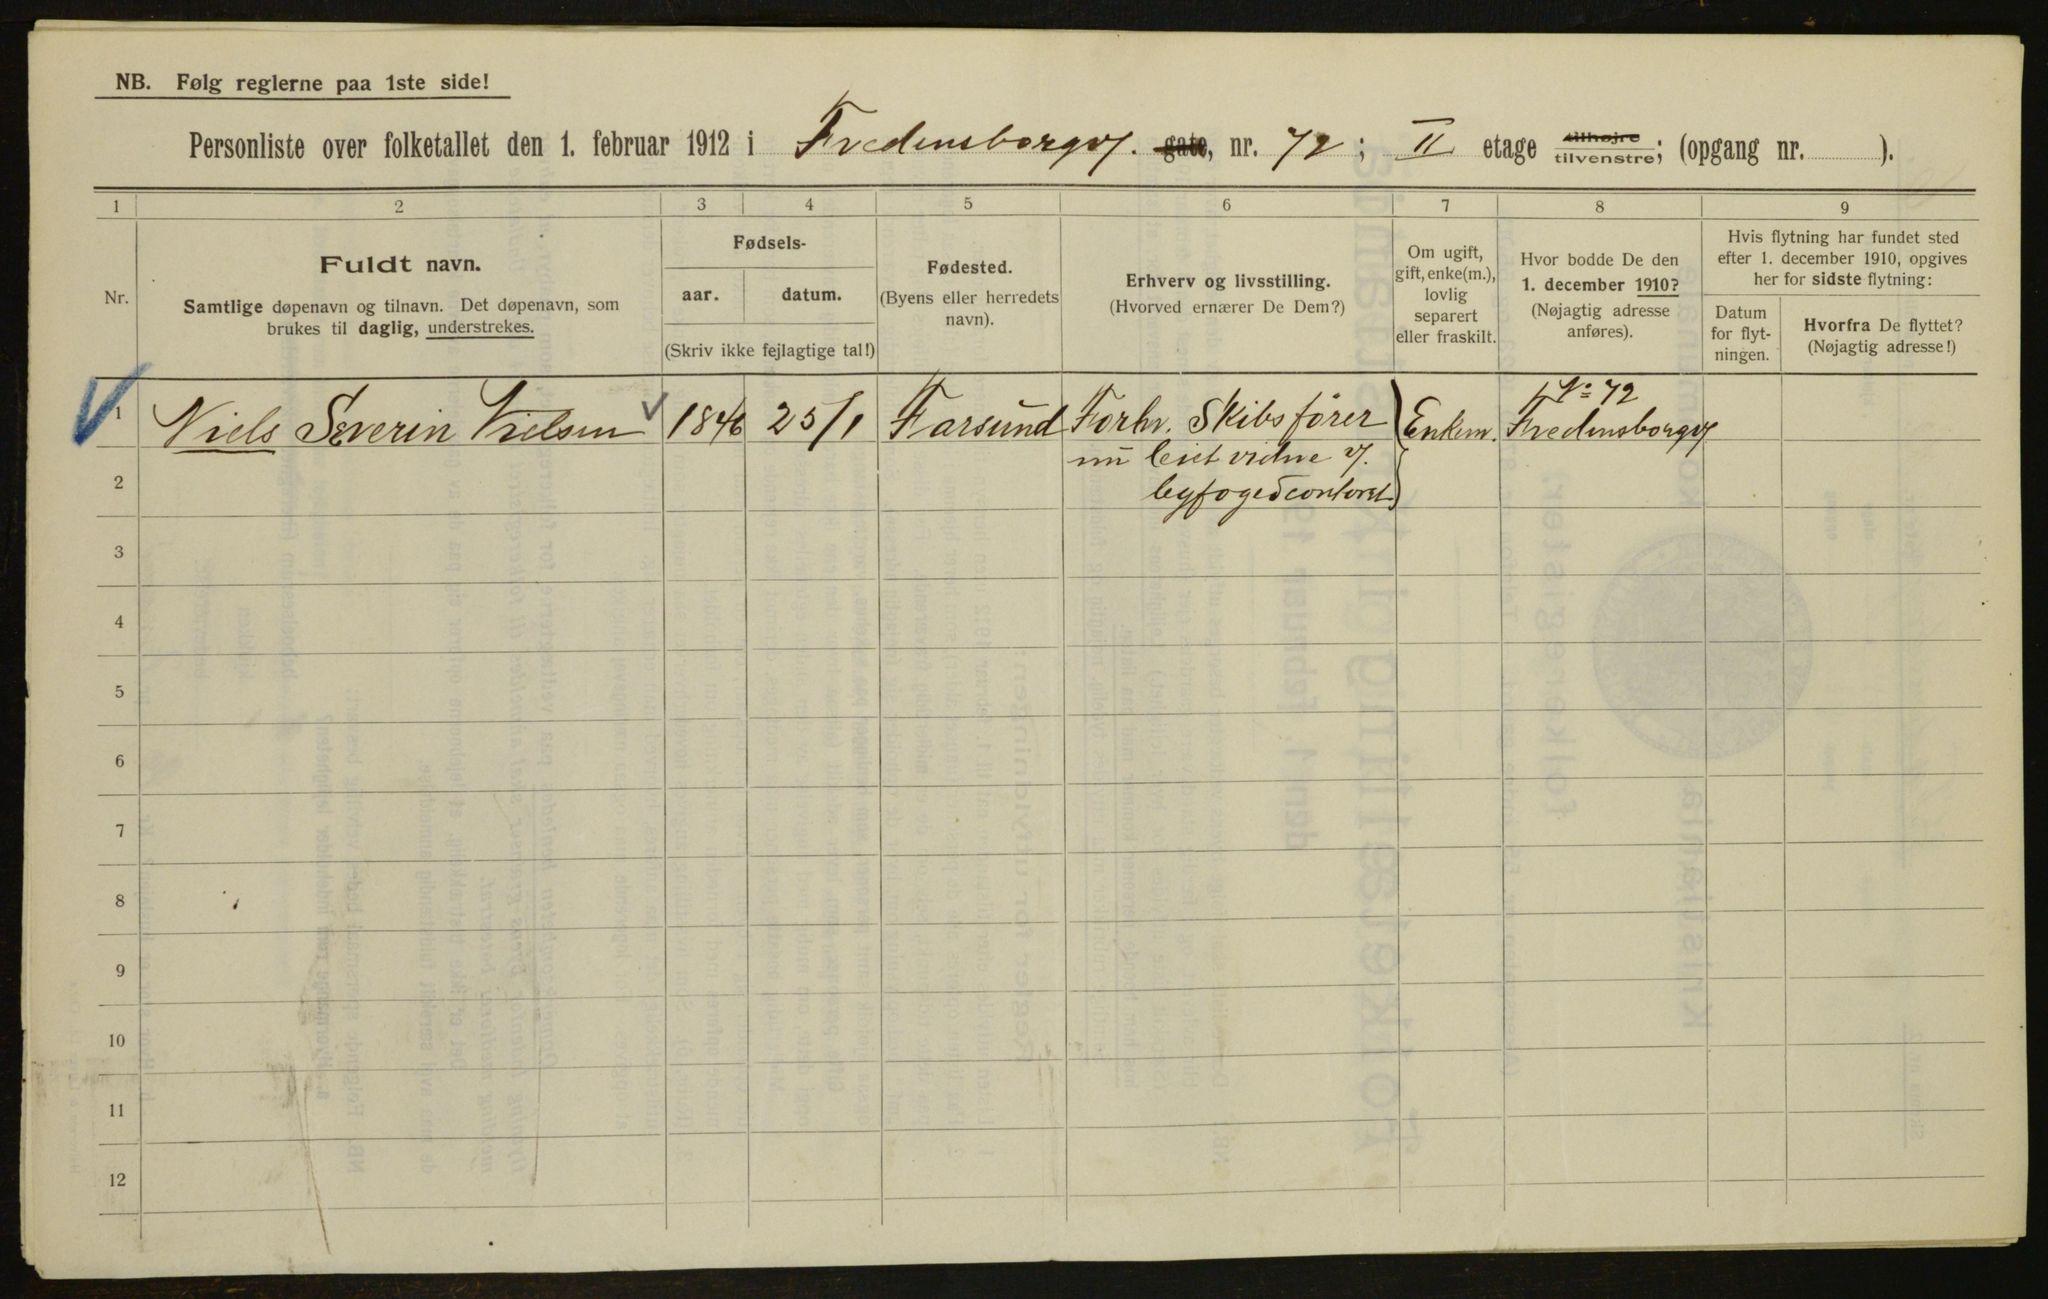 NB. Følg reglerne paa 1ste side!
Personliste over folketallet den 1. februar 1912 i Fredensborgv. gate, nr. 72; II etage tilhøjre tilvenstre; (opgang nr. ).
1 2 3 4 5 6 7 8 9
Nr.
Fuldt navn.
Samtlige døpenavn og tilnavn. Det døpenavn, som
brukes til daglig, understrekes.
Fødsels-
aar. datum.
(Skriv ikke fejlagtige tal!)
Fødested.
(Byens eller herredets
navn).
Erhverv og livsstilling.
(Hvorved ernærer De Dem?)
Om ugift,
gift, enke(m.),
lovlig
separert
eller fraskilt.
Hvor bodde De den
1. december 1910?
(Nøjagtig adresse
anføres).
Hvis flytning har fundet sted
efter 1. december 1910, opgives
her for sidste flytning:
Datum
for flyt-
ningen.
Hvorfra De flyttet?
(Nøjagtig adresse!)
No 72
1 Niels Severin Nielsen 1846 25/1 Farsund Forhv. Skibsfører Enkem. Fredensborgv
nu leiet vidne v.
2 byfogedcontoret
3
4
5
6
7
8
9
10
11
12